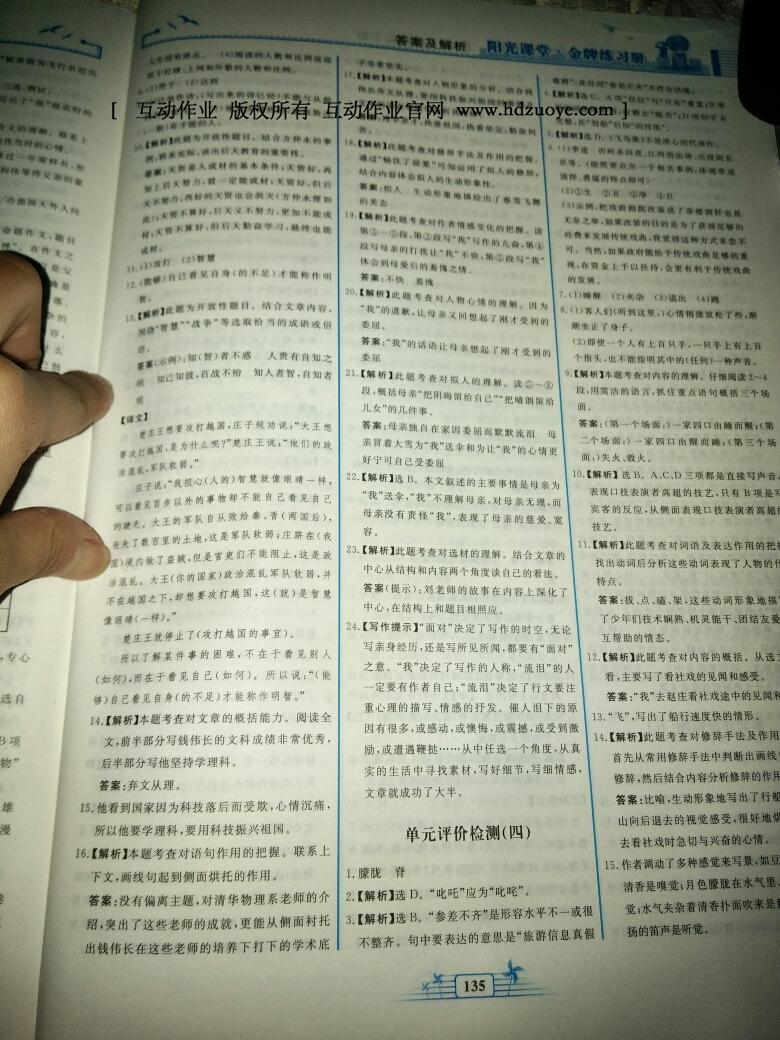 答案及解析 阳光课堂·金牌练习册
[ 互动作业 版权所有 互动作业官网 www.hdzuoye.com ]
人生没有终点。 (4)阅读的人数和比例远远
低于打博、上网和听歌的人数和比例。
例,联系实际,谈出后天教育的重要性。
答案:天资是人成材的基本条件;天资好,再
加上后天努力,就一定能成材;天资好,但后
天不努力,再好的天资也会泯灭(方仲永便如
此);天资不算好,后天又不努力,更加不能成
材;天资不算好,但后天勤奋学习,最终也能
成材。
11.(1)攻打 (2)智慧
12.(能够)自己看见自身(的不足)才能称作明
智。
13.【解析】此题为开放性题目。结合文章内容,
围绕“智慧”“战争”等选取恰当的成语或俗
语。
答案(示例):知(智)者不惑 人贵有自知之
明 知己知彼,百战不殆 知人者智,自知者
明
【译文】
楚庄王想要攻打越国,庄子规劝说:“大王想
要攻打越国,是为什么呢?”楚庄王说:“他们的政
治混乱,军队软弱。”
庄子说:“我担心(人的)智慧就像眼睛一样,
可以看见百步以外的事物却不能自己看见自己
的睫毛。大王的军队自从败给秦、晋(两国后),
丧失了数百里的土地,这是军队软弱;庄蹻在(我
国)境内做了盗贼,但是官吏们不能阻止,这是政
治混乱。大王(你的国家)政治混乱军队软弱,并
不在越国之下,却想要攻打越国,这(就)是智慧
像眼睛(一样)。”
楚庄王就停止了(攻打越国的事宜)。
所以了解某件事的困难,不在于看见别人
(如何),而在于看见自己(如何)。所以说:“(能
够)自己看见自身(的不足)才能称作明智。”
14.【解析】本题考查对文章的概括能力。阅读全
文,前半部分写钱伟长的文科成绩非常优秀,
后半部分写他坚持学理科。
答案:弃文从理。
15.他看到国家因为科技落后而受欺,心情沉痛,
所以他要学理科,要用科技振兴祖国。
16.【解析】本题考查对语句作用的把握。联系上
下文,画线句起到侧面烘托的作用。
答案:没有偏离主题,对清华物理系老师的介
绍,突出了这些老师的成就,更能从侧面衬托
出钱伟长在这些老师的培养下打下的学术底
子非常坚实。
17.【解析】本题考查对人物形象的分析。结合钱
18.【解析】此题考查对修辞手法及作用的把握。
通过“畅饮了甜浆”可知运用了拟人的修辞,
结合内容体会拟人的生动形象性。
答案:拟人 生动形象地描绘出了春雪飞舞
的美态
19.【解析】此题考查对作者情感变化的把握。读
第③~⑤段,第③段写“我”写作的亢奋,第④
段写母亲的打扰让“我”不快,第⑤段写“我”
体会到母爱后的羞愧之情。
答案:不快 羞愧
20.【解析】此题考查对人物心情的理解。因为
“我”的道歉,让母亲又回想起了刚才受到的
委屈。
答案:“我”的话语让母亲想起了刚才受到的
委屈
21.【解析】此题考查对拟人的理解。读⑤~⑧
段,概括母亲“把阴晦留给自己”“把晴朗留给
儿女”的几件事。
答案:母亲独自在家因委屈而默默流泪 母
亲冒着大雪为“我”送伞和为让“我”的心情更
好宁可自己受委屈
22.【解析】选B。本文叙述的主要事情是母亲为
“我”送伞,“我”不理解母亲,对母亲无理,而
母亲没有责怪“我”,表现了母亲的慈爱、宽
容。
23.【解析】此题考查对选材的理解。结合文章的
中心从结构和内容两个角度谈自己的看法。
答案(提示):刘老师的故事在内容上深化了
中心,在结构上和题目相照应。
24.【写作提示】“面对”决定了写作的时空,无论
写亲身经历,还是写所见所闻,都要有“面对”
之意。“我”决定了写作的人称,“流泪”的人
一定要有作者自己;“流泪”决定了行文要注
重心理的描写、情感的抒发。催人泪下的原
因有很多,或感动,或懊悔,或震撼,或受到激
励,或遭遇鞭挞……从中任选一个角度,从真
实的生活中寻找素材,写好细节,写细情感,
文章就成功了大半。
单元评价检测(四)
1.朦胧 脊
2.【解析】选D。“叱吒”应为“叱咤”。
3.【解析】选B。“参差不齐”是形容水平不一或很
不整齐。句中要表达的意思是“旅游信息真假
难辨”,此处用“参差不齐”不符合语境。
5.【解析】选D。《飞鸟集》不是冰心的代表作。
(2)①生 ②丑 ③净 ④旦
(3)示例:把戏曲剧院改装成了茶楼酒肆也是
无奈之举,如果改装的目的是为了获得足够的
经费来发展传统戏曲,我觉得这种方式未尝不
可。当然,如果政府能给予传统戏曲足够的重
视,在资金上予以扶持,会更有利于传统戏曲
的发展。
7.(1)睡醒 (2)夹杂 (3)说出 (4)跑
8.(1)客人们(听到这里,)心情稍微放松了些,渐
渐坐正了身子。
(2)即使一个人有上百只手,一只手上有上百
个指头,也不能指明其中的(任何)一种声音。
9.【解析】本题考查对内容的理解。仔细阅读2~4
段,用简洁的语言,抓住重点语句概括三个场
面。
答案:(第一个场面:)一家四口由睡而醒;(第
二个场面:)一家四口由醒而睡;(第三个场
面:)失火、救火。
10.【解析】选B。A、C、D三项都是直接写声音,
表现口技表演者高超的技艺,只有B项是写
宾客的反应,从侧面表现口技表演者高超的
技艺。
11.【解析】此题考查对词语及表达作用的把握
找出动词后分析这些动词表现了人物的什
特点。
答案:拔、点、磕、架,这些动词形象地描写
了少年们技术娴熟、机灵能干、团结友爱
互帮助的情态。
12.【解析】此题考查对内容的概括。从选文
看,主要写了看社戏的见闻和感受。
答案:“我”去赵庄看社戏途中的见闻和
13.“飞”,写出了船行速度快的情形。
14.【解析】此题考查对修辞手法及作用
首先从常用修辞手法中判断出画线
修辞,然后结合内容分析修辞的作用
答案:比喻,生动形象地写出了行船
山向后退去的视觉感受,很好地烘
去看社戏时急切与兴奋的心情。
15.作者调动了多种感觉来写景,如豆
清香是嗅觉;月色朦胧在水气里
觉;水气夹杂着清香扑面吹来是触
扬的笛声是听觉。
135